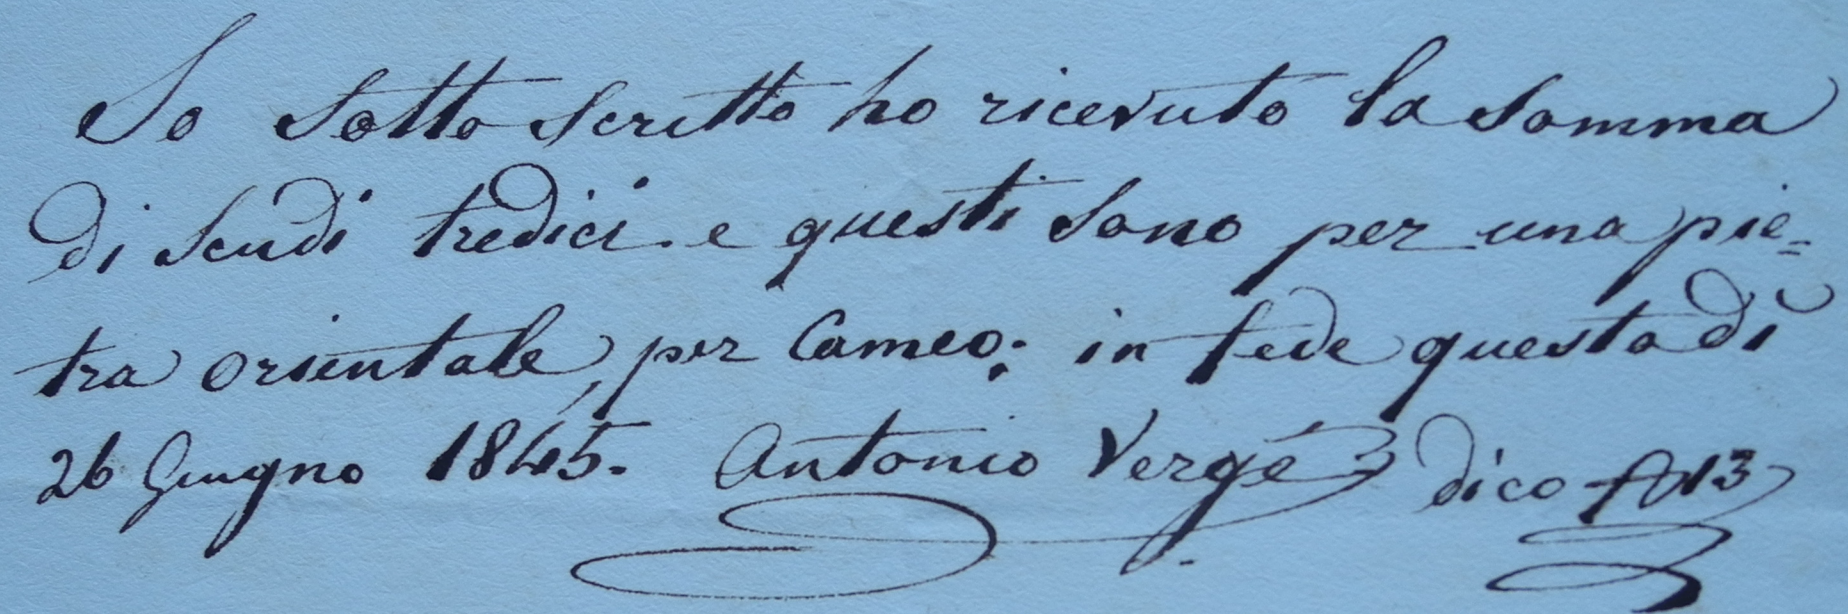 Io sotto scritto ho ricevuto la somma
di scudi tredici e questi sono per una pie=
tra orientale, per Cameo; in fede questo dì
26 Giugno 1845. Antonio Vergé dico 13